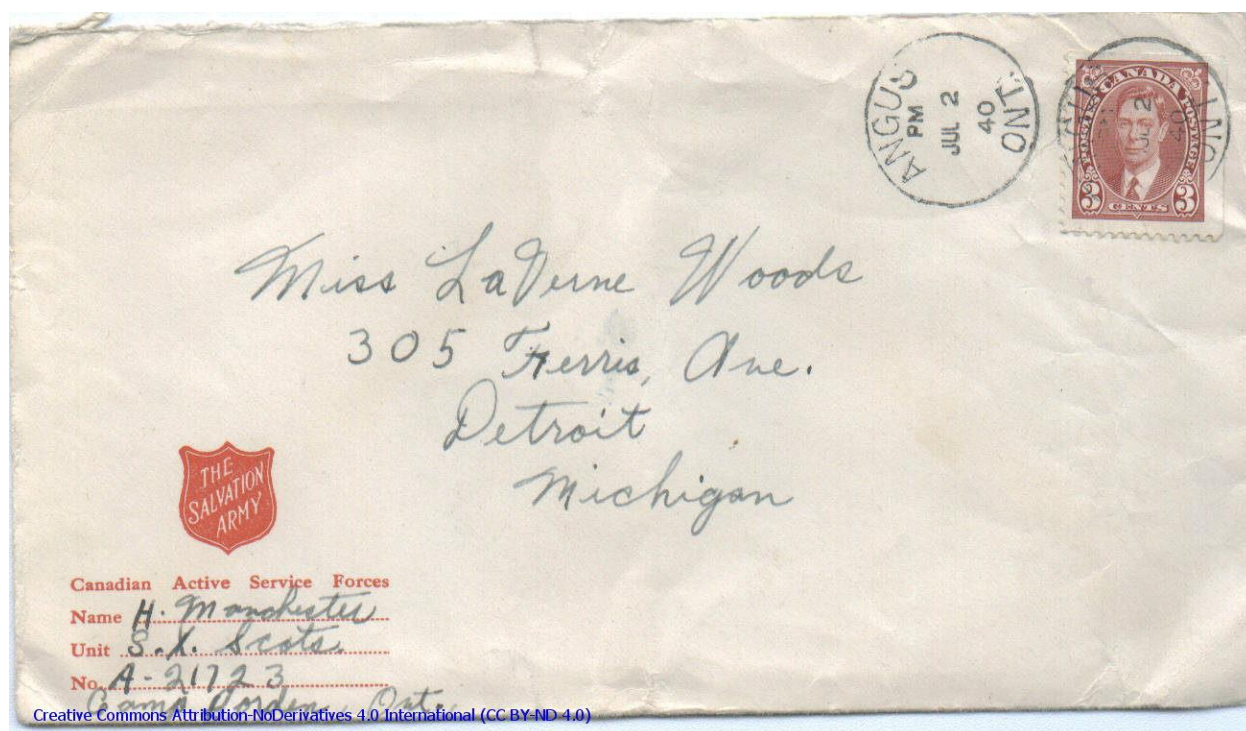 ANGUS
PM
JUL 2
40
ONT.
POSTES CANADA POSTAGE
3 CENTS 3
Miss LaVerne Woods
305 Ferris, Ave.
Detroit
Michigan
THE
SALVATION
ARMY
Canadian Active Service Forces
Name H. Manchester
Unit S.X. Scots.
No. A-21723
Camp Borden, Ont.
Creative Commons Attribution-NoDerivatives 4.0 International (CC BY-ND 4.0)